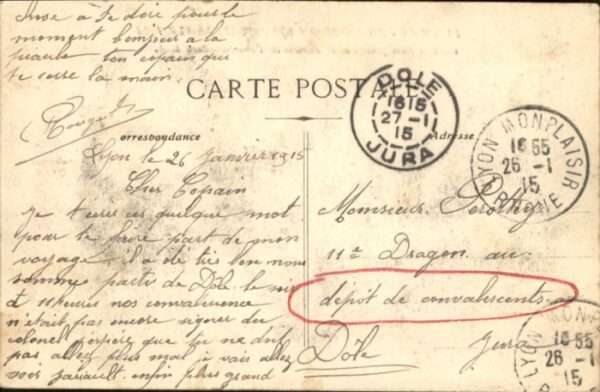 chose à te dire pour le
moment bonjour a la
ton copain que
te serre la main.
CARTE POSTALE
orrespondance
Adresse
DOLE
16 15
27 - 1
15
JURA
LYON MONPLAISIR
16 55
26 - 1
15
RHONE
Lyon le 26 Janvier 1915
Cher Copain
Je t'ecris ces quelque mot
pour te faire part de mon
voyage il a été très bon nous
somme partie de Dôle le
à 11 heures nos convalescence
n'était pas encore signer du
colonel j'espère que tu ne doit
pas allez plus mal
enfin plus grand
Monsieur
11e Dragon au
dépôt de convalescents
Dôle Jura
LYON MONP
16 55
26 - 1
15